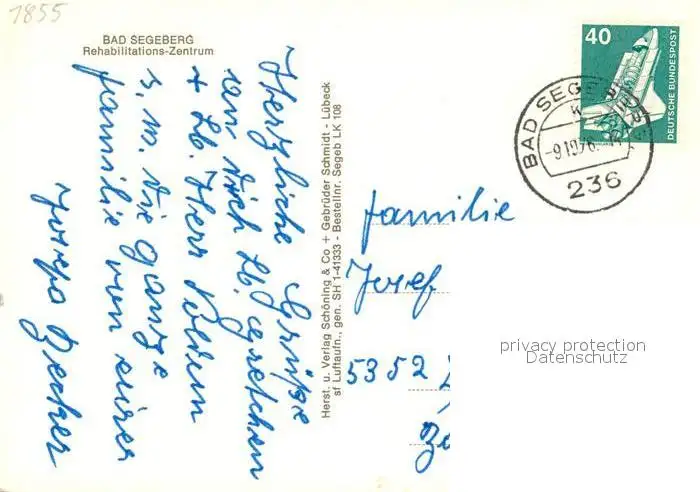 1855
BAD SEGEBERG
Rehabilitations-Zentrum
Herzliche Grüße
Dich lb. Gretchen
+ lb. Herr
s. m. die ganze
familie von eurer
Becker
Herst. u. Verlag Schöning & Co + Gebrüder Schmidt - Lübeck
sf Luftaufn., gen. SH 1-41333 - Bestellnr. Segeb LK 108
40
DEUTSCHE BUNDESPOST
BAD SEGEBERG
-9.10.76.
236
familie
Josef
5352
privacy protection
Datenschutz